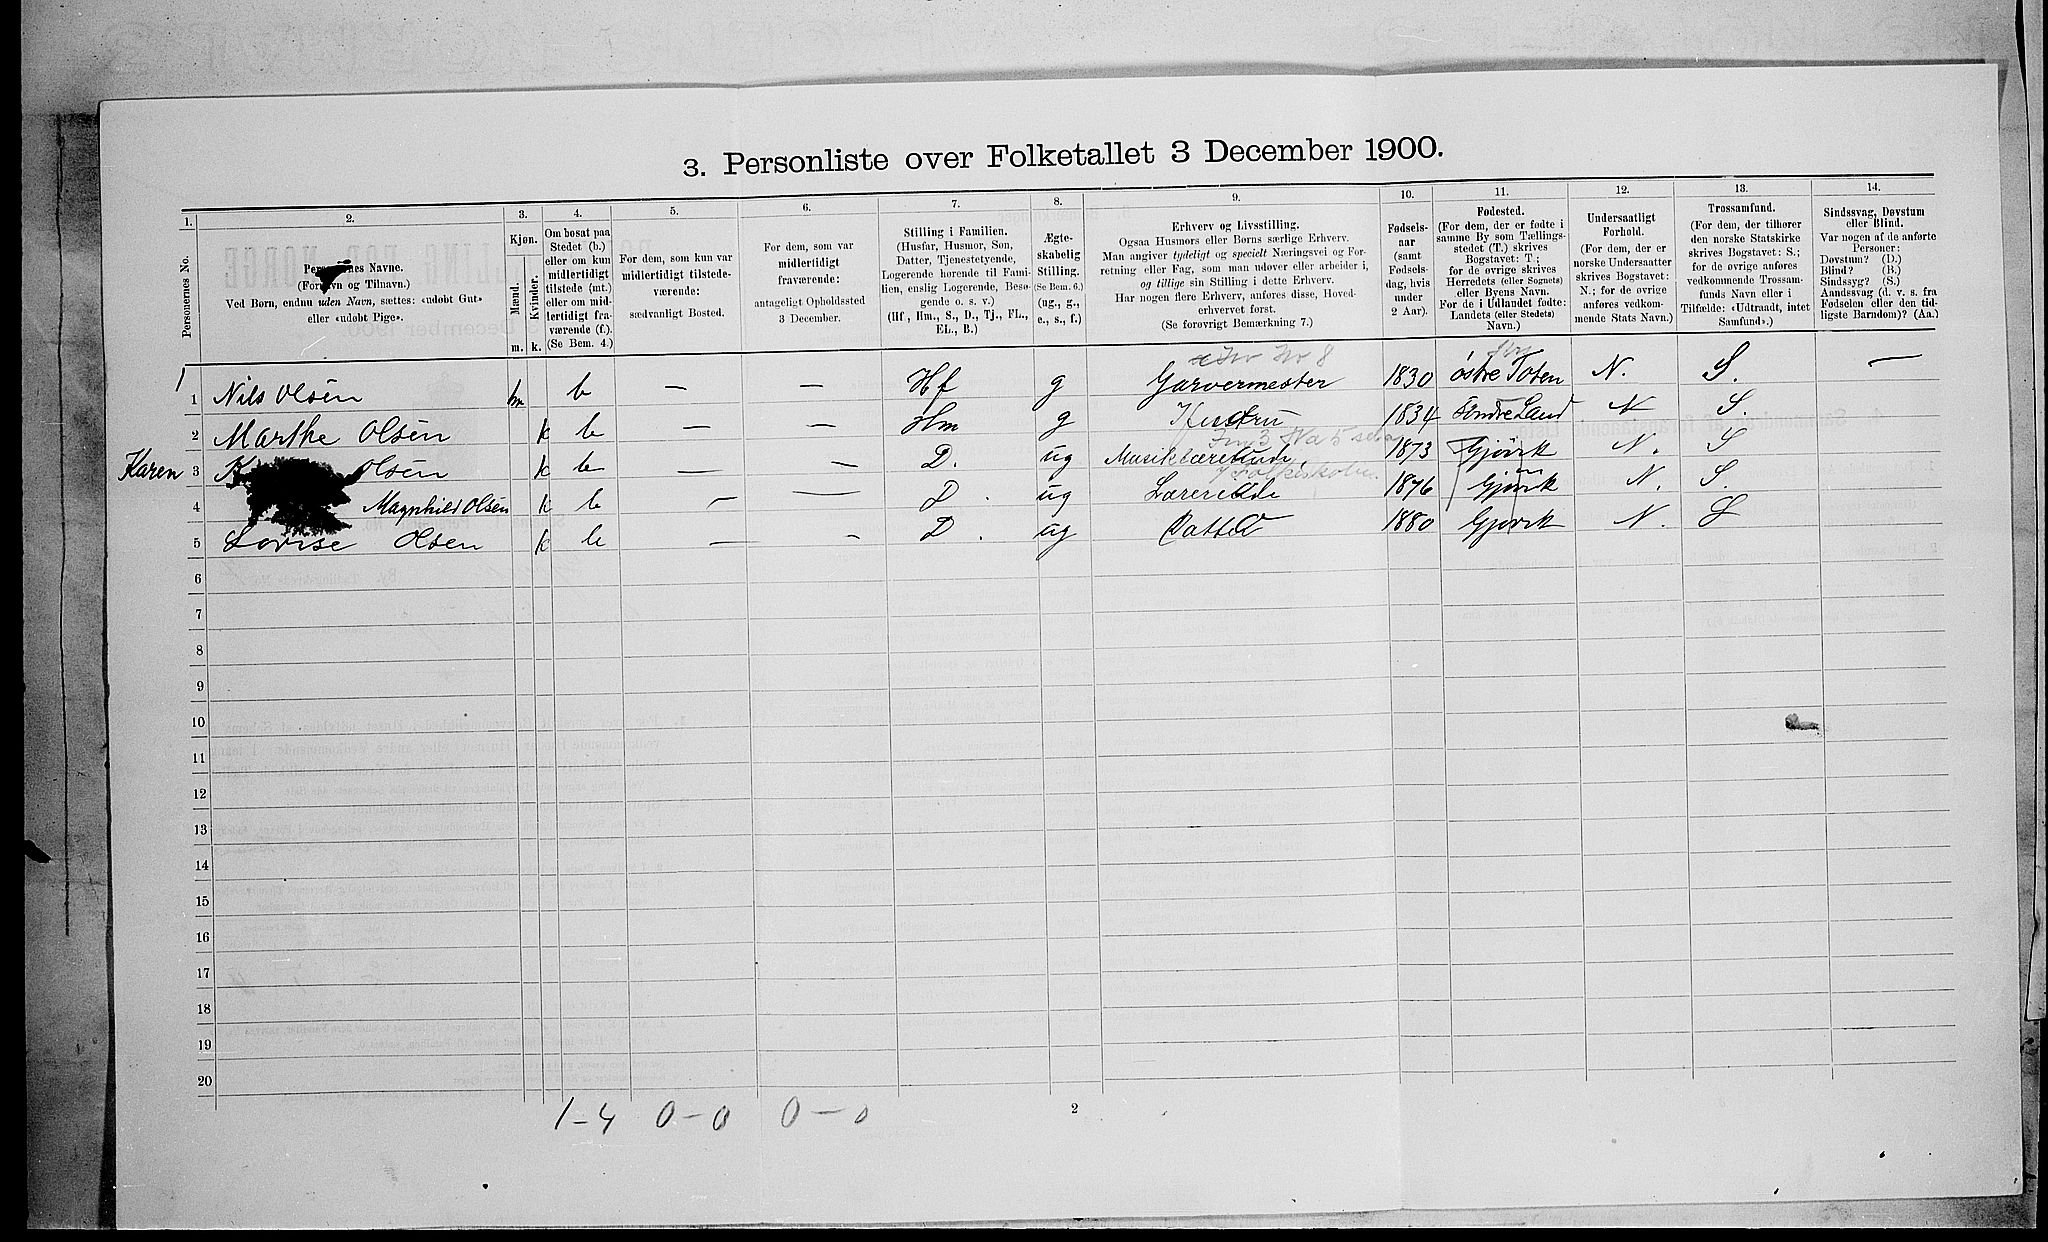 3. Personliste over Folketallet 3 December 1900.
1. 2. 3. 4. 5. 6. 7. 8. 9. 10. 11. 12. 13. 14.
Personernes No.
Personernes Navne.
(Fornavn og Tilnavn.)
Ved Børn, endnu uden Navn, sættes: «udøbt Gut»
eller «udøbt Pige».
Kjøn.
Mænd.
Kvinder.
m. k.
Om bosat paa
Stedet (b.)
eller om kun
midlertidigt
tilstede (mt.)
eller om mid-
lertidigt fra-
værende (f.).
(Se Bem. 4.)
For dem, som kun var
midlertidigt tilstede-
værende:
sædvanligt Bosted.
For dem, som var
midlertidigt
fraværende:
antageligt Opholdssted
3 December.
Stilling i Familien.
(Husfar, Husmor, Søn,
Datter, Tjenestetyende,
Logerende hørende til Fami-
lien, enslig Logerende, Besø-
gende o. s. v.)
(Hf, Hm., S., D., Tj., FL.,
EL., B.)
Ægte-
skabelig
Stilling.
(Se Bem. 6.)
(ug., g.,
e., s., f.)
Erhverv og Livsstilling.
Ogsaa Husmors eller Børns særlige Erhverv.
Man angiver tydeligt og specielt Næringsvei og For-
retning eller Fag, som man udøver eller arbeider i,
og tillige sin Stilling i dette Erhverv.
Har nogen flere Erhverv, anføres disse, Hoved-
erhvervet først.
(Se forøvrigt Bemærkning 7.)
Fødsels-
aar
(samt
Fødsels-
dag, hvis
under
2 Aar).
Fødested.
(For dem, der er fødte i
samme By som Tællings-
stedet (T.) skrives
Bogstavet: T.;
for de øvrige skrives
Herredets (eller Sognets)
eller Byens Navn.
For de i Udlandet fødte:
Landets (eller Stedets)
Navn.)
Undersaatligt
Forhold.
(For dem, der er
norske Undersaatter
skrives Bogstavet:
N.; for de øvrige
anføres vedkom-
mende Stats Navn.)
Trossamfund.
(For dem, der tilhører
den norske Statskirke
skrives Bogstavet: S.;
for de øvrige anføres
vedkommende Trossam-
funds Navn eller i
Tilfælde: «Udtraadt, intet
Samfund».)
Sindssvag, Døvstum
eller Blind.
Var nogen af de anførte
Personer:
Døvstum? (D.)
Blind? (B.)
Sindssyg? (S.)
Aandssvag (d. v. s. fra
Fødselen eller den tid-
ligste Barndom)? (Aa.)
1 Nils Olsen m b — — Hf g Garvermester 1830 østre Toten N. S. —
2 Marthe Olsen k b — — Hm g Hustru 1834 Søndre Land N S.
Karen 3 K Olsen k b — — D. ug Musiklærerinde, 1873 Gjøvik N. S
4 Magnhild Olsen k b — — D. ug Lærerinde 1876 Gjøvik N. S.
5 Lovise Olsen k b — — D. ug Datter 1880 Gjøvik N. S
6
7
8
9
10
11
12
13
14
15
16
17
18
19
20
1-4 0-0 0-0
2